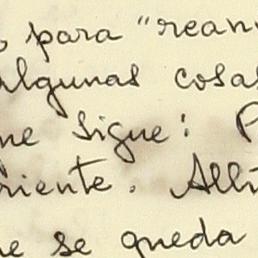 para "rean
algunas cosas
ne sigue: P
riente. Allí
e se queda